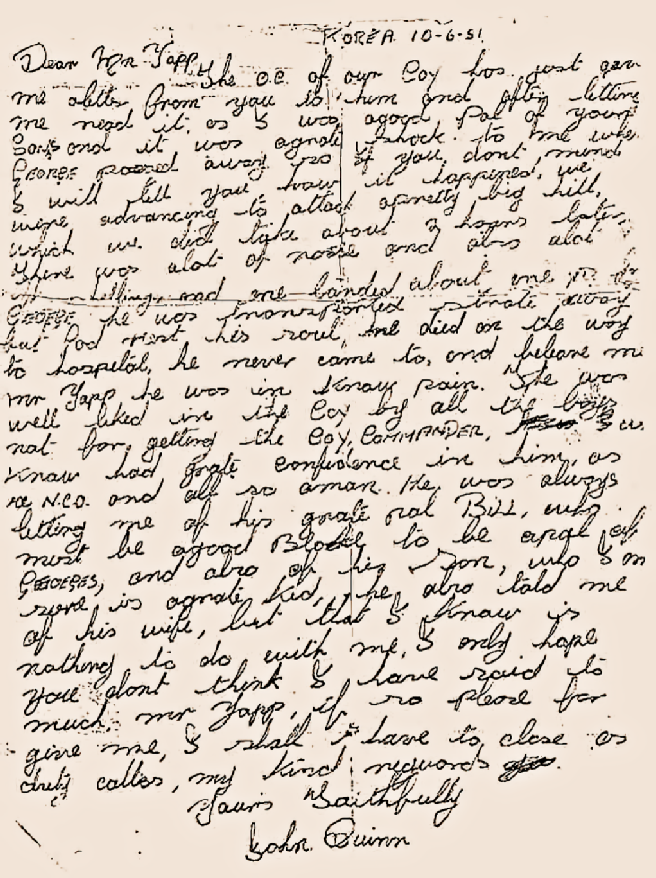 KOREA 10-6-51
Dear Mr Yapp,
The O.C. of our Coy has just gave
me a letter from you to him and after letting
me read it, as I was agood Pal of your
Sons and it was agrate shock to me when
GEORGE passed away so if you, dont, mind
I will tell you how it happened, we
were advancing to attack apretty big hill,
which we did take about 3 hours later,
there was alot of noise and also alot
of shelling, and one landed about one
GEORGE, he was transported straite away
but God rest his soul, he died on the way
to hospital, he never came to, and beleave me
mr Yapp he was in know pain. The was
well liked in the Coy by all the boys
not for, getting the Coy, COMMANDER,
know had grate confidence in him, as
N.C.O. and all so aman. He was always
letting me of his grate pal BILL, who
most be agood Bloke to be apal of
GEORGES, and also of his Son, who I'm
sure is agrate kid, he also told me
of his wife, but that I know is
nothing to do with me, I only hope
you dont think I have said to
much, mr Yapp, if so please for
give me, I shall have to close as
duty calles, my kind regards
Yours Faithfully
John. Quinn